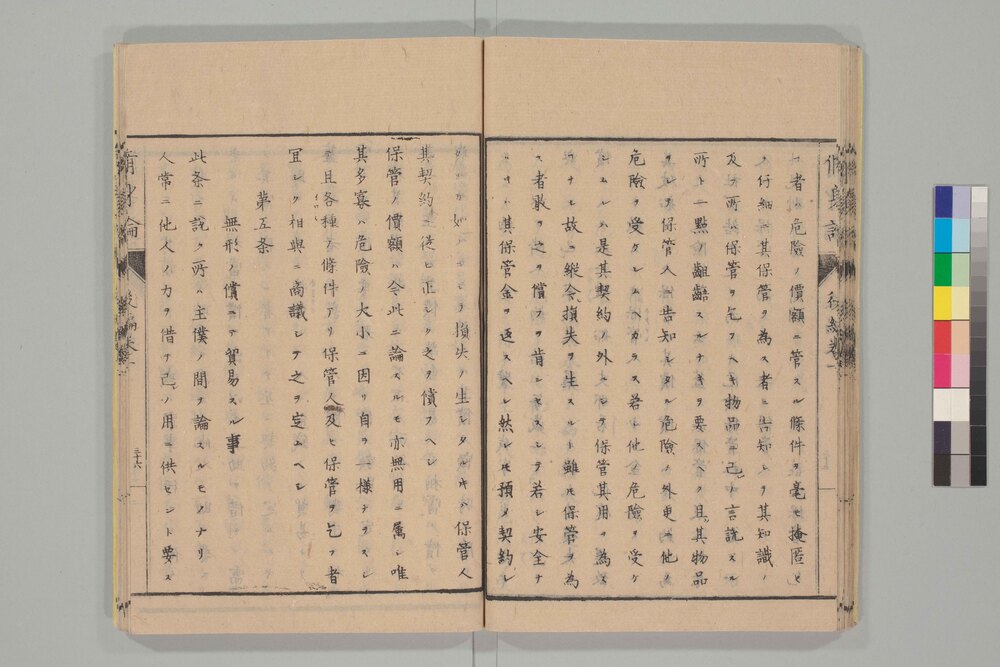 フ者ハ危險ノ價額ニ管スル條件ヲ毫モ掩匿セ
ノ仔細ニ其保管ヲ為ス者ニ告知シテ其知識ノ
及フ所ト保管ヲ乞フヘキ物品ニ己レカ言説スル
所ト一點ノ齟齬スルナキヲ要スヘク且ツ其物品
ヲシテ保管人ニ告知シタル危險ノ外更ニ他ノ
危險ヲ受ケシムヘカラス若シ他ニ危險ヲ受ケ
シムルハ是其契約ノ外ニシテ保管其用ヲ為ス
ナシ故ニ縱令損失ヲ生スルト雖モ保管ヲ為
ス者敢テ之ヲ償フヲ肯セス而シテ若シ安全ナ
其保管金ヲ返スヘシ然レモ預メ契約シ
如クニシテ損失ノ生シタルキハ保管人
其契約ニ從ヒ正シク之ヲ償フヘシ
保管ノ價額ハ今此ニ論スルモ亦無用ニ属シ唯
其多寡ハ危險ノ大小ニ因リ自ラ一樣ナラスシ
テ且各種ノ條件アリ保管人及ヒ保管ヲ乞フ者
宜シク相與ニ商議シテ之ヲ定ムヘシ
第五条
無形ノ償ニテ貿易スル事
此条ニ説ク所ハ主僕ノ間ヲ論スルモノナリ
人常ニ他人ノ力ヲ借リテ己ノ用ニ供セント要ス
三十六